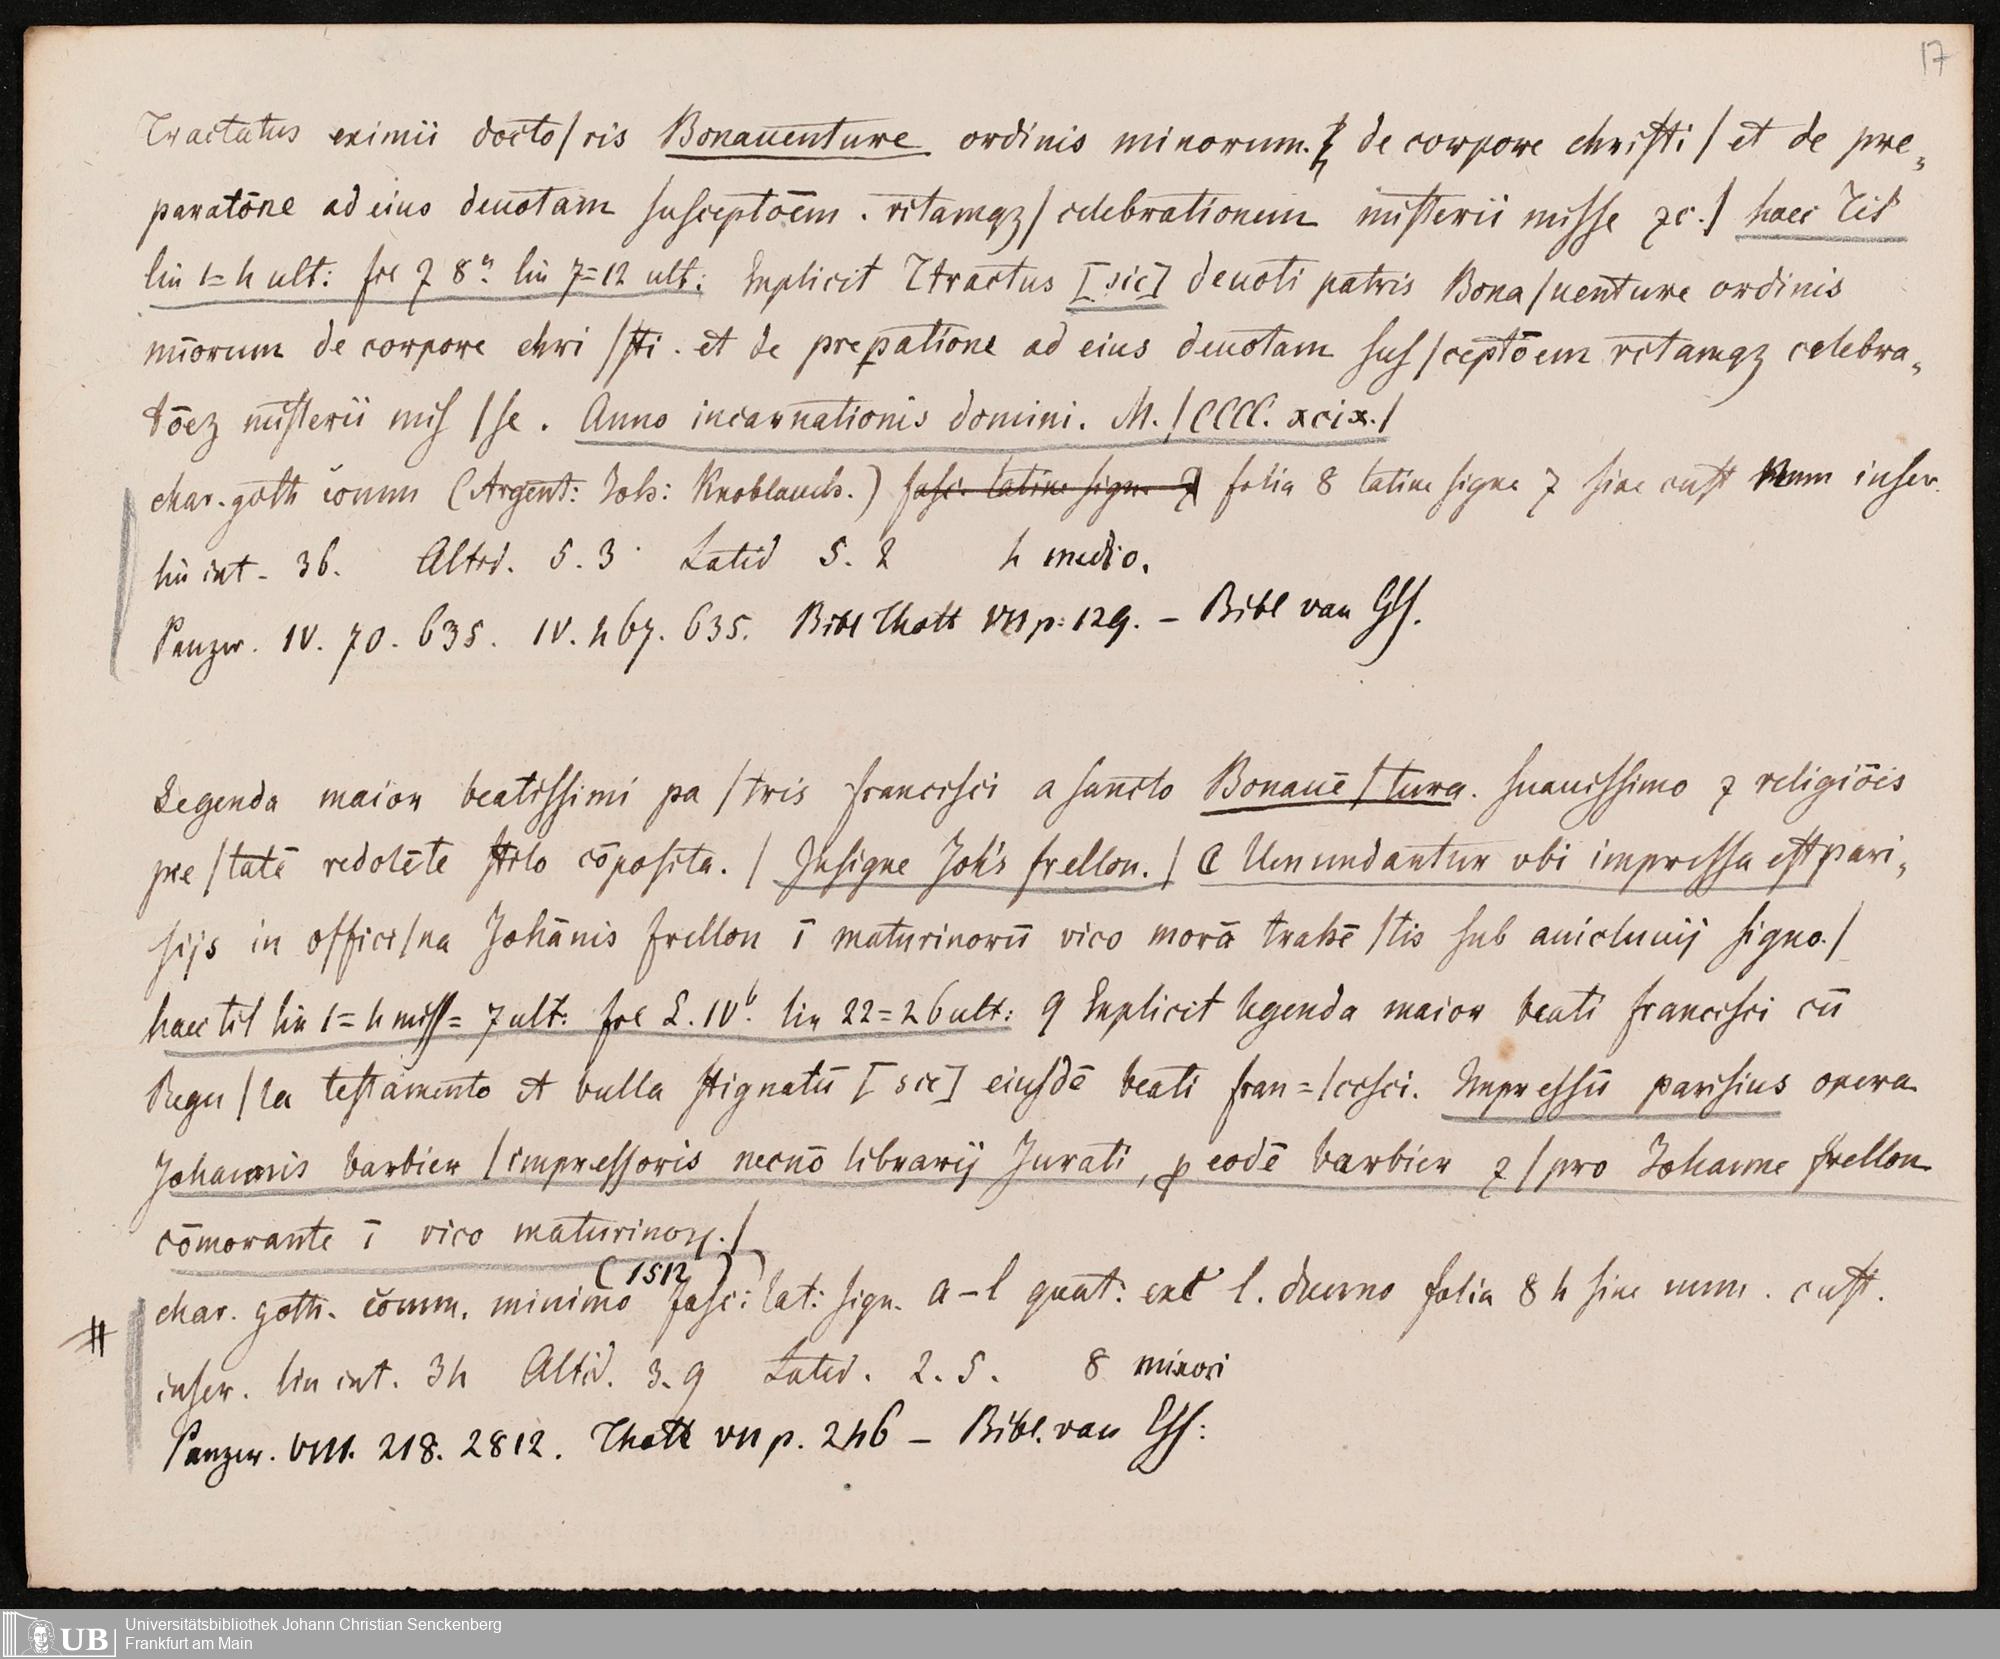 17
Tractatus eximii docto/ris Bonauenture ordinis minorum. de corpore christi / et de pre„
paratōne ad eius deuotam susceptōem . rctamqz / celebrationem misterii misse ⁊c. / haec Tit
lin 1=4 ult: fol 7 8ᵃ. lin 7=12 ult: Explicit Ttractus [sic] deuoti patris Bona/uenture ordinis
mīorum de corpore chri /sti . et de preꝑatione ad eius deuotam sus /ceptōem rctamqz celebra„
tōez misterii mis /se . Anno incarnationis domini. M. / CCCC. xcix. /
char. goth comm (Argent: Joh: Knoblauch.) fasc. latine sign. folia 8 latine signe 7 sine cust Num inser.
lin int. 36. Altid. 5.3 Latid 5.2 4 medio.
Panzer. IV. 70. 635. IV. 467. 635. Bibl Thott VII p: 129. – Bibl van Ess.
Legenda maior beatissimi pa /tris francisci a sancto Bonauē /tura. suauissimo ⁊ religiōis
pre /tatē redolēte stilo cōposita. / Insigne Joh's frellon. / C Uenundantur vbi impressa est pari„
sijs in offici/na Johānis frellon ī maturinorū vico morā trahē /tis sub auicluuij signo. /
haec tit lin 1=4 miss= 7 ult: fol L. IVᵇ. lin 22=26 ult: ¶ Explicit legenda maior beati francisci cū
Regu /la testamento et bulla stignatū [sic] eiusdē beati fran= /cisci. Impressū parisius opera
Johannis barbier /impressoris necnō librarij Jurati, ꝑ eodē barbier ⁊ /pro Johanne frellon
cōmorante ī vico maturinoꝝ. /
(1512)
char. goth. comm. minimo fasc: lat: sign. a – l quat: ext l. duerno folia 84 sine num . cust.
inser. lin int. 34 Altid. 3.9 Latid. 2.5. 8 minori
#
Panzer. VIII. 218. 2812. Thott VII p. 246 – Bibl. van Ess:
UB
Universitätsbibliothek Johann Christian Senckenberg
Frankfurt am Main